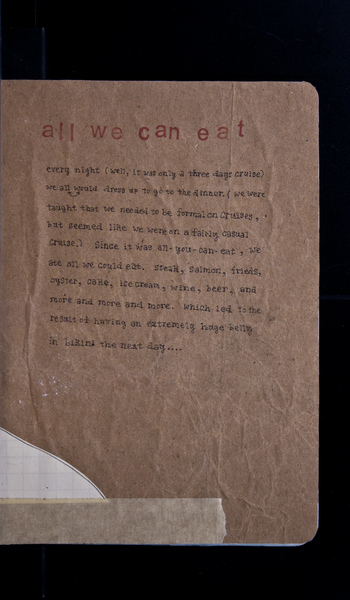 all we can eat
every night (well, it was only a three days cruise)
we all would dress up to go to the dinner. (we were
taught that we needed to be formal on cruises,
but seemed like we were on a fairly casual
cruise.) Since it was all-you-can-eat, we
ate all we could eat. steak, salmon, frieds,
oyster, cake, ice cream, wine, beer, and
more and more and more. Which led to the
result of having an extremely huge belly
in bikini the next day....